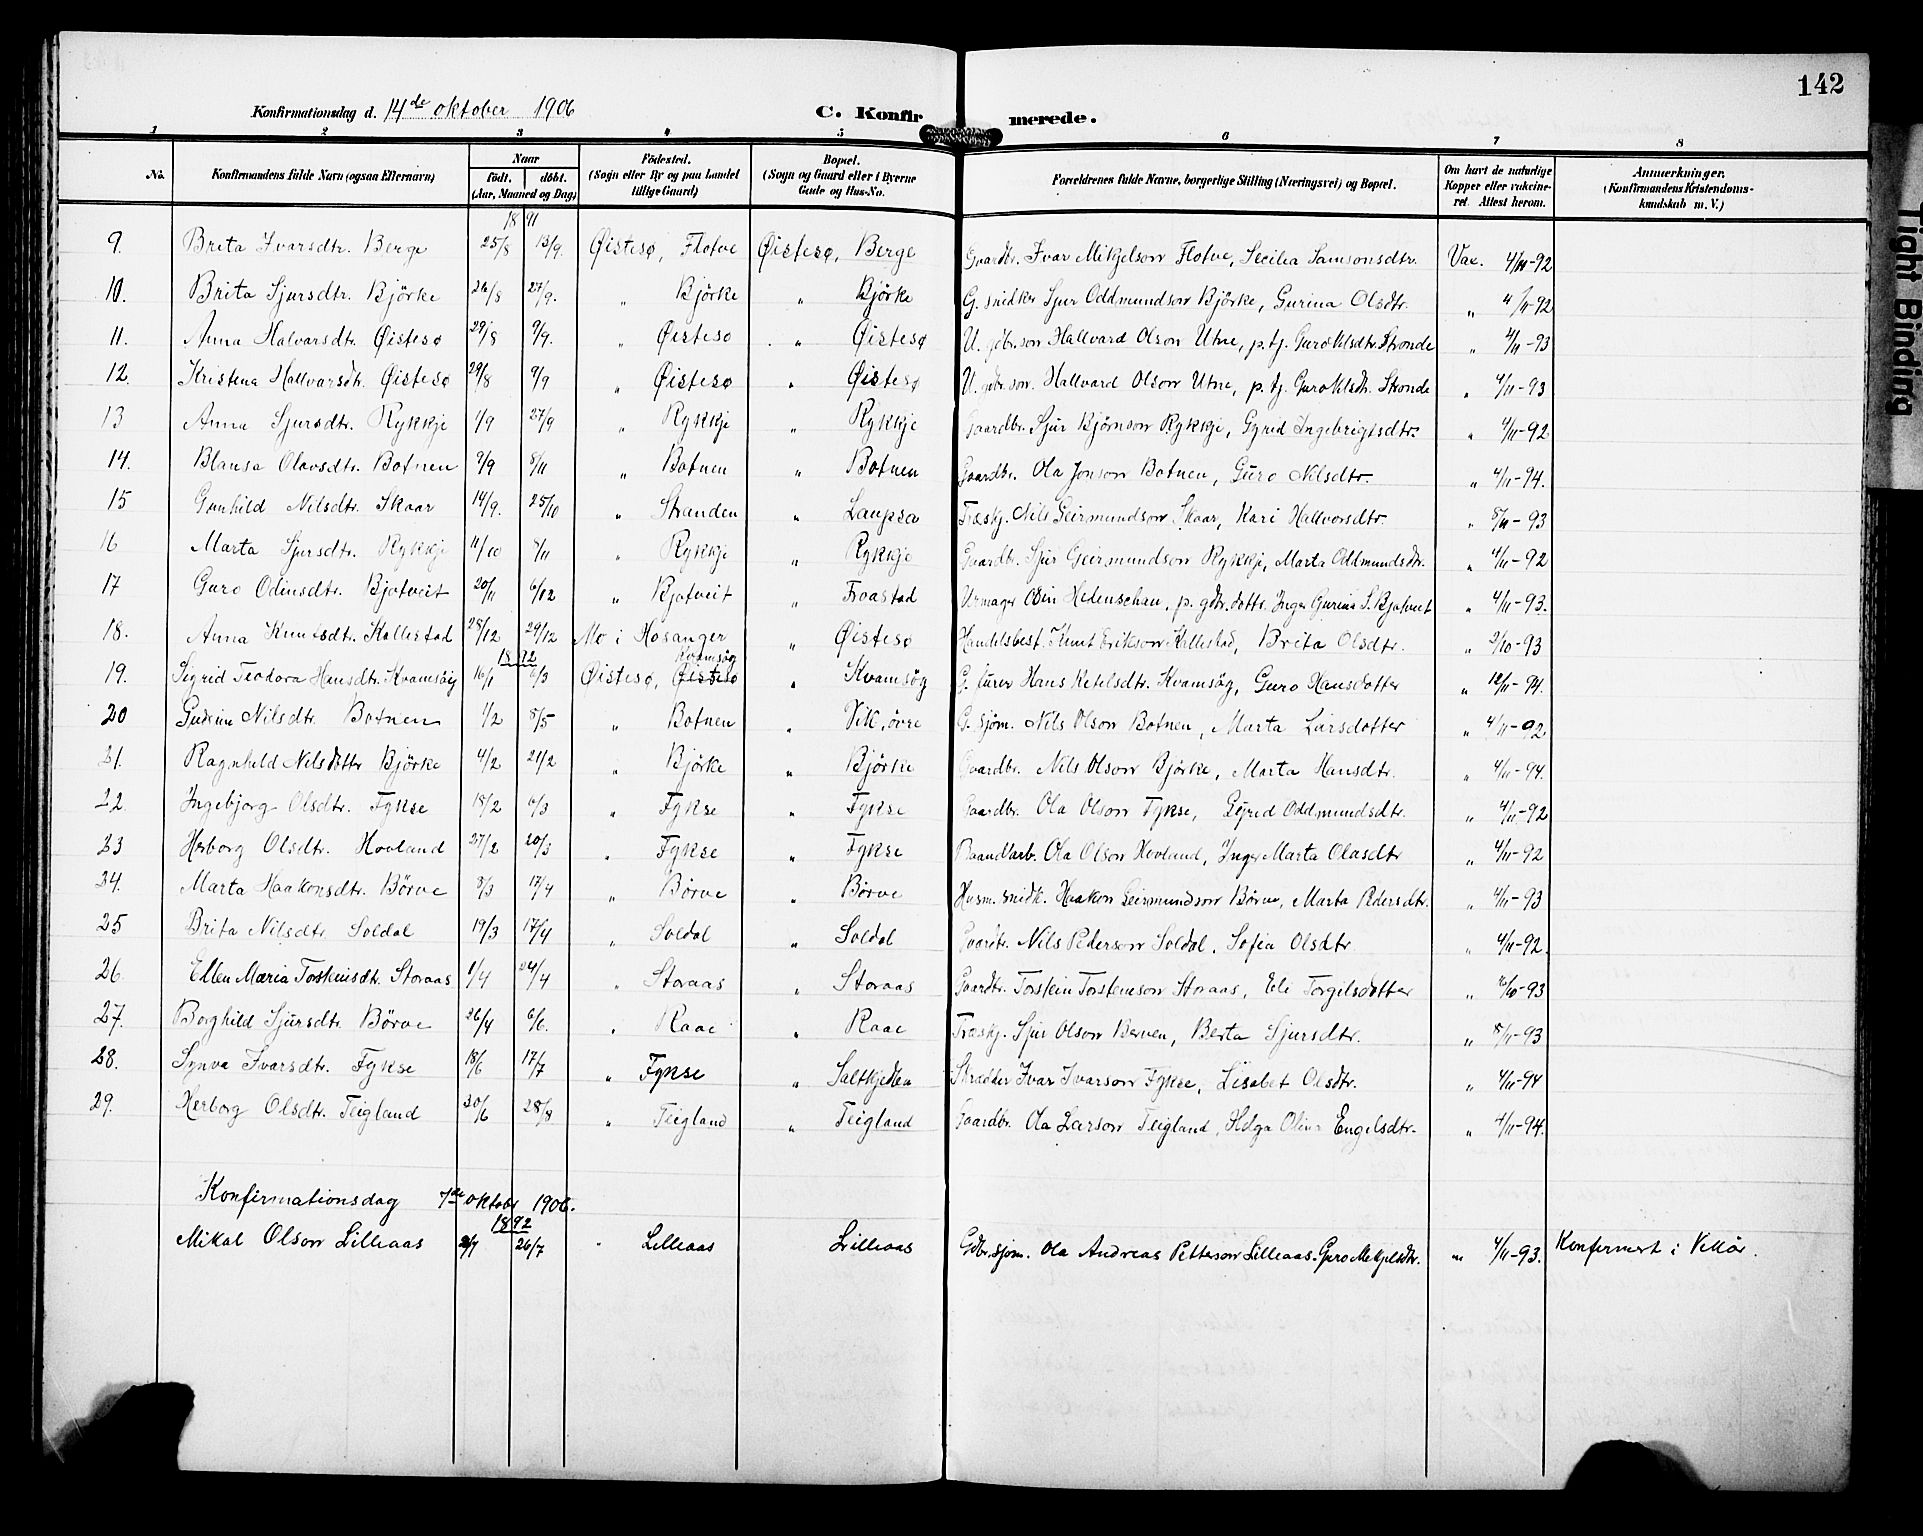 142
Konfirmationsdag d. 14de oktober 1906 C. Konfirmerede.
1 2 3 4 5 6 7 8
No. Konfirmandens fulde Navn (ogsaa Efternavn) Naar födt. döbt. (Aar, Maaned og Dag) Födested. (Sogn eller By og paa Landet tillige Gaard) Bopæl. (Sogn og Gaard eller i Byerne Gade og Hus-No. Forældrenes fulde Navne, borgerlige Stilling (Næringsvei) og Bopæl. Om havt de naturlige Kopper eller vakcineret. Attest herom. Anmærkninger. (Konfirmandens Kristendomskundskab m. V.)
1891
9. Brita Ivarsdtr. Berge 25/8 13/9. Øistesø, Flotve Øistesø, Berge Gaardbr. Ivar Mikjelson Flotve, Secilia Samsonsdtr. Vac. 4/11-92
10. Brita Sjursdtr. Björke 26/8 27/9. " Björke " Björke G. snidker Sjur Oddmundson Björke, Gurina Olsdtr. " 4/11-92
11. Anna Halvarsdtr. Øistesø 29/8 9/9. " Øistesø " Øistesø U. gdbr.son Hallvard Olson Utne, p. tj. Guro Olsdtr. Stronde " 4/11-93
12. Kristina Hallvarsdtr. Øistesø 29/8 9/9 " Øistesø " Øistesø U. gdbr.son. Hallvard Olson Utne, p. tj. Guro Olsdtr. Stronde " 4/11-93
13 Anna Sjursdtr. Rykkje 1/9 27/9 " Rykkje " Rykkje Gaardbr. Sjur Björnson Rykkje, Gyrid Ingebrigtsdtr. " 4/11-92
14. Blansa Olavsdtr. Botnen 9/9 8/11 " Botnen " Botnen Gaardbr. Ola Jonson Botnen, Guro Nilsdtr. " 4/11-94.
15 Gunhild Nilsdtr. Skaar 14/9. 25/10 " Stranden " Laupsa Træskj. Nils Geirmundson Skaar, Kari Hallvorsdtr. " 8/11-93
16 Marta Sjursdtr. Rykkje 11/10 8/11 " Rykkje " Rykkje Gaardbr. Sjur Geirmundson Rykkje, Marta Oddmundsdtr. " 4/11-92
17 Guro Odinsdtr. Bjotveit 20/11 6/12 " Bjotveit " Froastad Urmager Odin Hedenschau, p. gdbr.dottr. Inger Gurina S. Bjotveit " 4/11-93.
18. Anna Knutsdtr. Kallestad 28/12 29/12 Mo i Hosanger " Øistesø Handelsbest. Knut Erikson Kallestad, Brita Olsdtr. " 2/10-93
1892 Kvamsøg
19. Sigrid Teodora Hansdtr. Kvamsøig 16/1 6/3 Øistesø, Øistesø " Kvamsøg G. lurer Hans Ketelsdtr. Kvamsøg, Guro Hansdotter " 12/11-94.
20 Gudrun Nilsdtr. Botnen 1/2 8/5 " Botnen " Vik, övre G. sjøm. Nils Olson Botnen, Marta Larsdotter " 4/11-92
21. Ragnhild Nilsdotter Björke 4/2 21/2 " Björke " Björke Gaardbr. Nils Olson Björke, Marta Hansdtr. " 4/11-94.
22 Ingebjorg Olsdtr. Fykse 18/2 6/3 " Fykse " Fykse Gaardbr. Ola Olson Fykse, Gyrid Oddmundsdtr. " 4/11-92
23 Herborg Olsdtr. Hovland 27/2 20/3 " Fykse " Fykse Baandarb. Ola Olson Hovland, Inger Marta Olasdtr " 4/11-92
24. Marta Haakonsdtr. Börve 8/3 17/4 " Börve " Börve Husm. snidk. Haakon Geirmundson Börve, Marta Pedersdtr. " 4/11-93
25 Brita Nilsdtr. Soldal 19/3 17/4 " Soldal " Soldal Gaardbr. Nils Pederson Soldal, Sofia Olsdtr. " 4/11-92.
26 Ellen Maria Torsteinsdtr. Storaas 1/4 24/4 " Storaas " Storaas Gaardbr. Torstein Torsteinson Storaas, Eli Torgilsdotter " /10-93
27. Borghild Sjursdtr. Börve 26/4 6/6. " Raae " Raae Træskj. Sjur Olson Berven, Berta Sjursdtr. " 8/11-93
28. Synva Ivarsdtr. Fykse 18/6 17/7 " Fykse " Saltkjedlen Skrædder Ivar Ivarson Fykse, Lisabet Olsdtr. " 4/11-94
29. Herborg Olsdtr. Teigland 20/6 28/8 " Teigland " Teigland Gaardbr. Ola Larson Teigland, Helga Olina Engelsdtr. " 4/11-94.
Konfirmationsdag 7de oktober 1906.
1892
Mikal Olson Lilleaas 2/7 26/7 " Lilleaas Lilleaas Gdbr. sjøm. Ola Andreas Petterson Lilleaas. Guro Mikjelsdtr. " 4/11-93. Konfirmert i Vikør.
Tight Binding